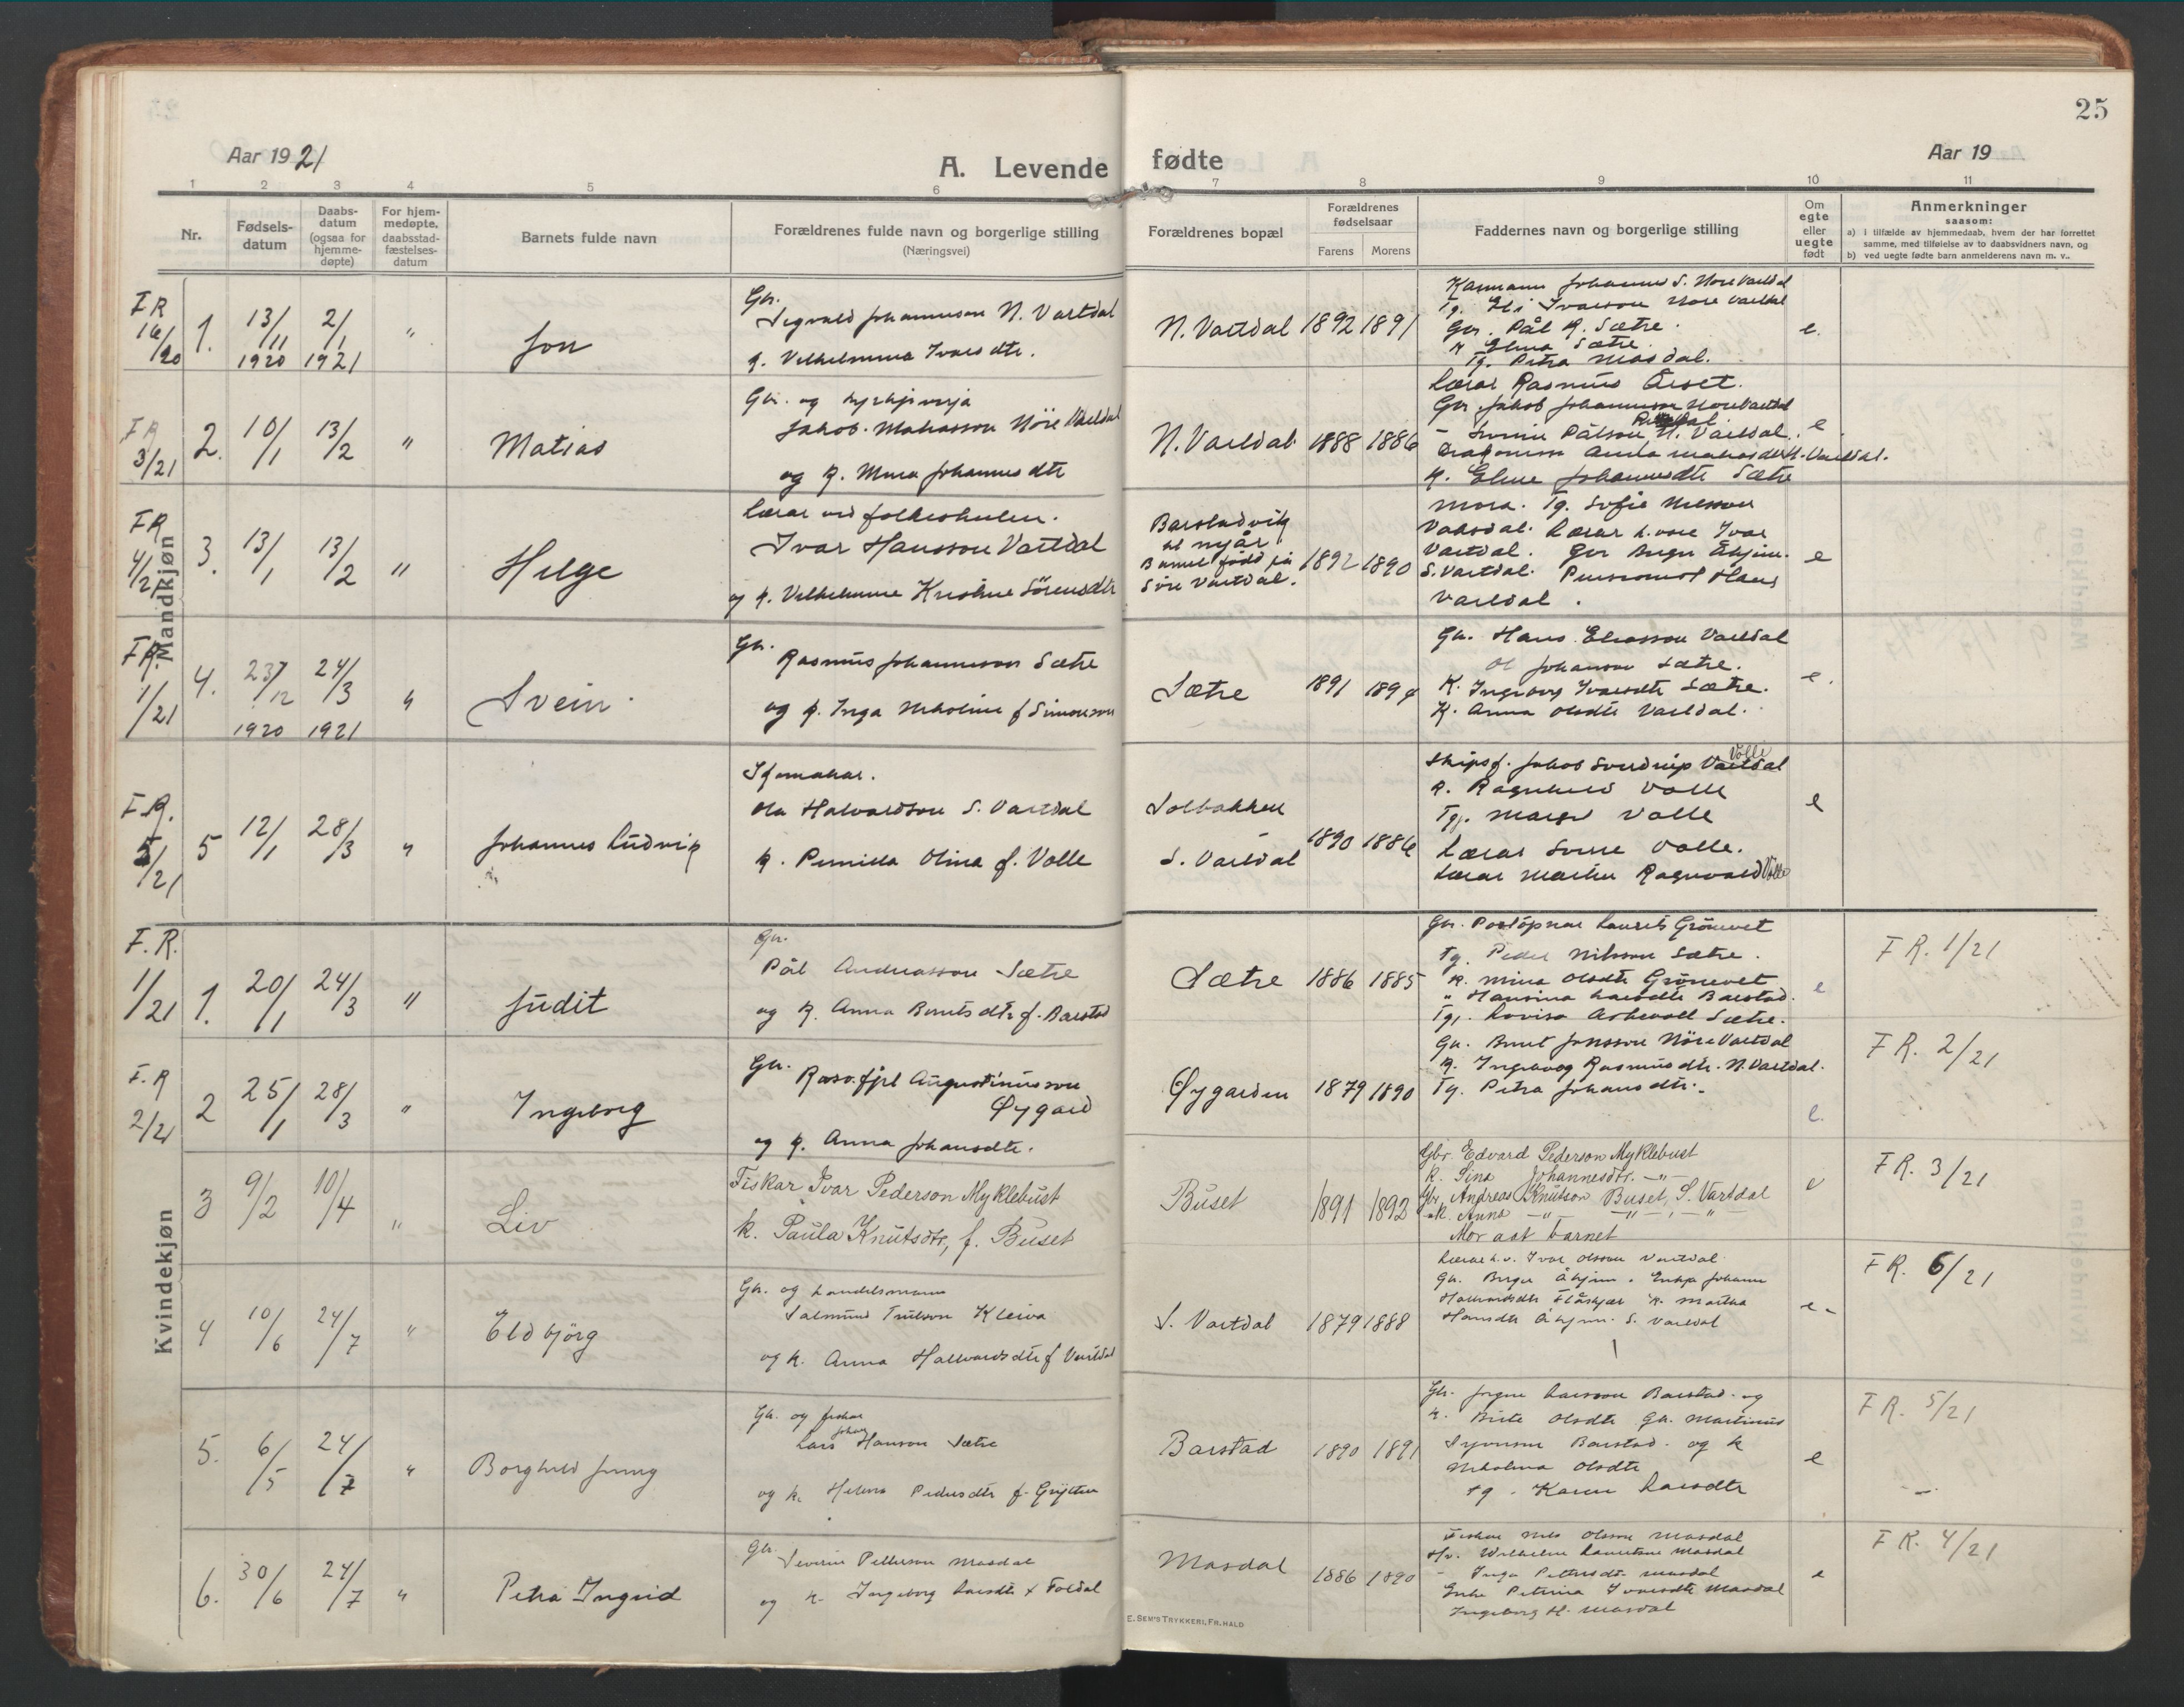 25
Aar 1921
A. Levende fødte
Aar 19
1 2 3 4 5 6 7 8 9 10 11
Nr.
Fødsels-
datum
Daabs-
datum
(ogsaa for
hjemme-
døpte)
For hjem-
medøpte,
daabsstad-
fæstelses-
datum
Barnets fulde navn
Forældrenes fulde navn og borgerlige stilling
(Næringsvei)
Forældrenes bopæl
Forældrenes
fødselsaar
Farens Morens
Faddernes navn og borgerlige stilling
Om
egte
eller
uegte
født
Anmerkninger
saasom:
a) i tilfælde av hjemmedaab, hvem der har forrettet
samme, med tilføielse av to daabsvidners navn, og
b) ved uegte fødte barn anmelderens navn m. v..
Mandkjøn
FR
16/20 1. 13/11 1920 2/1 1921 " Jon
Gbr.
Sigvald Johannesson N. Vartdal
k. Vilhelmina Ivarsdtr.
N. Vartdal 1892 1891
Johannes S. Nore Vartdal
Tg. Eli Ivarson Nore Vartdal
Gbr. Pål K. Sætre.
K Elina Sætre.
Tg. Petra Masdal.
e.
FR
3/21 2. 10/1 13/2 " Matias
Gbr. og kyrkjeverja
Jakob Matiasson Nöre Vartdal
og k. Mina Johannesdtr
N. Vartdal 1888 1886
Lærar Rasmus Årset.
Gbr. Jakob Johannesson Nore Vartdal
Pålson, N. Vartdal.
N. Vartdal.
k. Eline Johannesdtr Sætre
e
FR
4/21 3. 13/1 13/2 " Helge
Lærar ved folkeskulen.
Ivar Hansson Vartdal
og k. Vilhelmine Kristine Sörensdtr
Barstadvik
til nyår
Barnet född på
Söre Vartdal.
1892 1890
Mora. Tg. Sofie Nilsson
Vartdal. Lærar h.v. Ivar
Vartdal. Gbr Birger Åhjem.
S. Vartdal. Hans
Vartdal.
e
FR.
1/21 4. 23/12 1920 24/3 1921 " Svein
Gbr.
Rasmus Johannesson Sætre
og k. Inga Nikoline f Simonson
Sætre 1891 1894
Gbr. Hans Eliasson Vartdal
Ol Johanson Sætre.
K. Ingeborg Ivarsdtr Sætre.
K. Anna Olsdtr Vartdal.
e.
F.R.
5/21 5 12/1 28/3 " Johannes Ludvig
Ola Halvardson S. Vartdal
k. Pernilla Olina f. Volle
Solbakken
S. Vartdal
1890 1886
Skipsf. Jakob Sverdrup Vartdal Volle
k. Ragnhild Volle
Tg. Margit Volle
Lærar Sverre Volle.
Lærar Martin Ragnvald Volle
e
Kvindekjøn
F.R.
1/21 1. 20/1 24/3 " Judit
Gbr.
Pål Andreasson Sætre
og k. Anna Berntsdtr f. Barstad
Sætre 1886 1885
Gbr. Postöpnar Laurits Grönevet
Tg. Peder Nilsson Sætre.
k. Mina Olsdtr Grönevet
" Hansina Larsdtr Barstad.
Tg. Lovisa Sætre.
e
FR. 1/21
F.R
2/21 2 25/1 28/3 " Ingeborg
Gbr. Rasmus Augustinusson
Øygard
og k. Anna Johansdtr.
Øygarden 1879 1890
Gbr. Bernt Jonsson Nöre Vartdal
k. Ingeborg Rasmusdtr. N. Vartdal.
Tg. Petra Johansdtr.
e.
FR. 2/21
3 9/2 10/4 " Liv
Fiskar Ivar Pederson Myklebust
k. Paula Knutsdtr, f. Buset
Buset 1891 1892
Gbr. Edvard Pederson Myklebust
k. Sina Johannesdtr. —"—
Gbr. Andreas Knutson Buset, S. Vartdal
k. Anna —"— —"— —"—
Mor åt barnet
e
FR. 3/21
4 10/6 24/7 " Eldbjörg
Gbr. og handelsmann
Salmund Trulson Kleiva
og k. Anna Halvardsdtr f Vartdal
S. Vartdal 1879 1888
Lærar h.v. Ivar Olsson Vartdal
Gbr. Birger Åhjem. Enkja Johanne
Halvardsdtr Flåskjer k. Martha
Hansdtr Åhjem. S. Vartdal
e
FR. 6/21
5. 6/5 24/7 " Borghild Jenny
Gbr. og fiskar
Lars Johan Hanson Sætre
og k. Helena Pedersdtr f. Grytten
Barstad 1890 1891
Gbr. Jørgen Larsson Barstad og
k. Birte Olsdtr Gbr. Martinus
Barstad og k
Nikolina Olsdtr
tg. Karen Larsdtr
e
FR. 5/21
6. 30/6 24/7 " Petra Ingrid
Gbr. Severin Petterson Masdal
og k. Ingeborg Larsdtr f Foldal
Masdal 1886 1890
Fiskar Nils Olsson Masdal
Wilhelm Lauritson Masdal
Inga Pettersdtr Masdal
Enke Petrina Ivarsdtr Masdal
Ingeborg H. Masdal
e
FR. 4/21
E. SEM'S TRYKKERI, FR.HALD